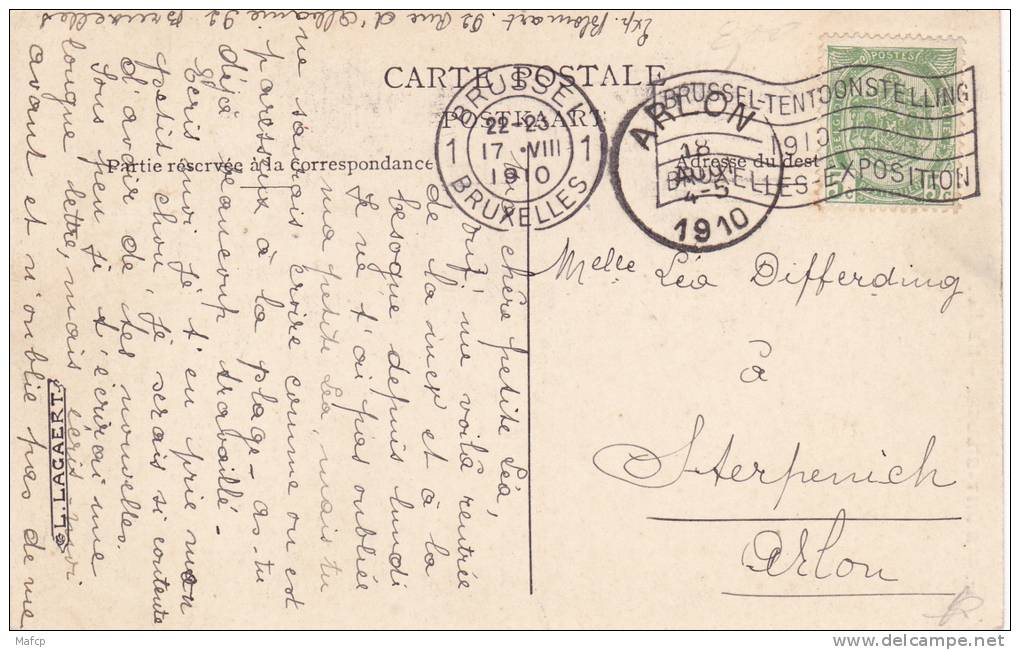 Exp. Blomart. 92 Rue d'Allianie 92 Bruxelles
CARTE POSTALE
POSTKAART
Partie réservée à la correspondance
Adresse du dest
BRUSSEL
22-23
17 VIII
1910
1 1
BRUXELLES
ARLON
18
AOUT
4-5
1910
BRUSSEL-TENTOONSTELLING
1910
BRUXELLES-EXPOSITION
POSTES
5c 5c
Melle Léa Differding
à
Sterpenich
Arlon
Ma chère petite Léa,
Ouf! me voilà rentrée
de la mer et à la
besogne depuis lundi
Je ne t'ai pas oubliée
ma petite Léa, mais tu
ne saurais croire comme on est
paresseux à la plage - as-tu
déjà beaucoup travaillé -
Ecris moi Jé t'en prie mon
petit chou! Jé serais si contente
d'avoir de tes nouvelles.
Sous peu je t'écrirai une
longue lettre, mais écris-moi
avant et n'oublie pas de me
L. LAGAERT
Mafcp
delcampe.net